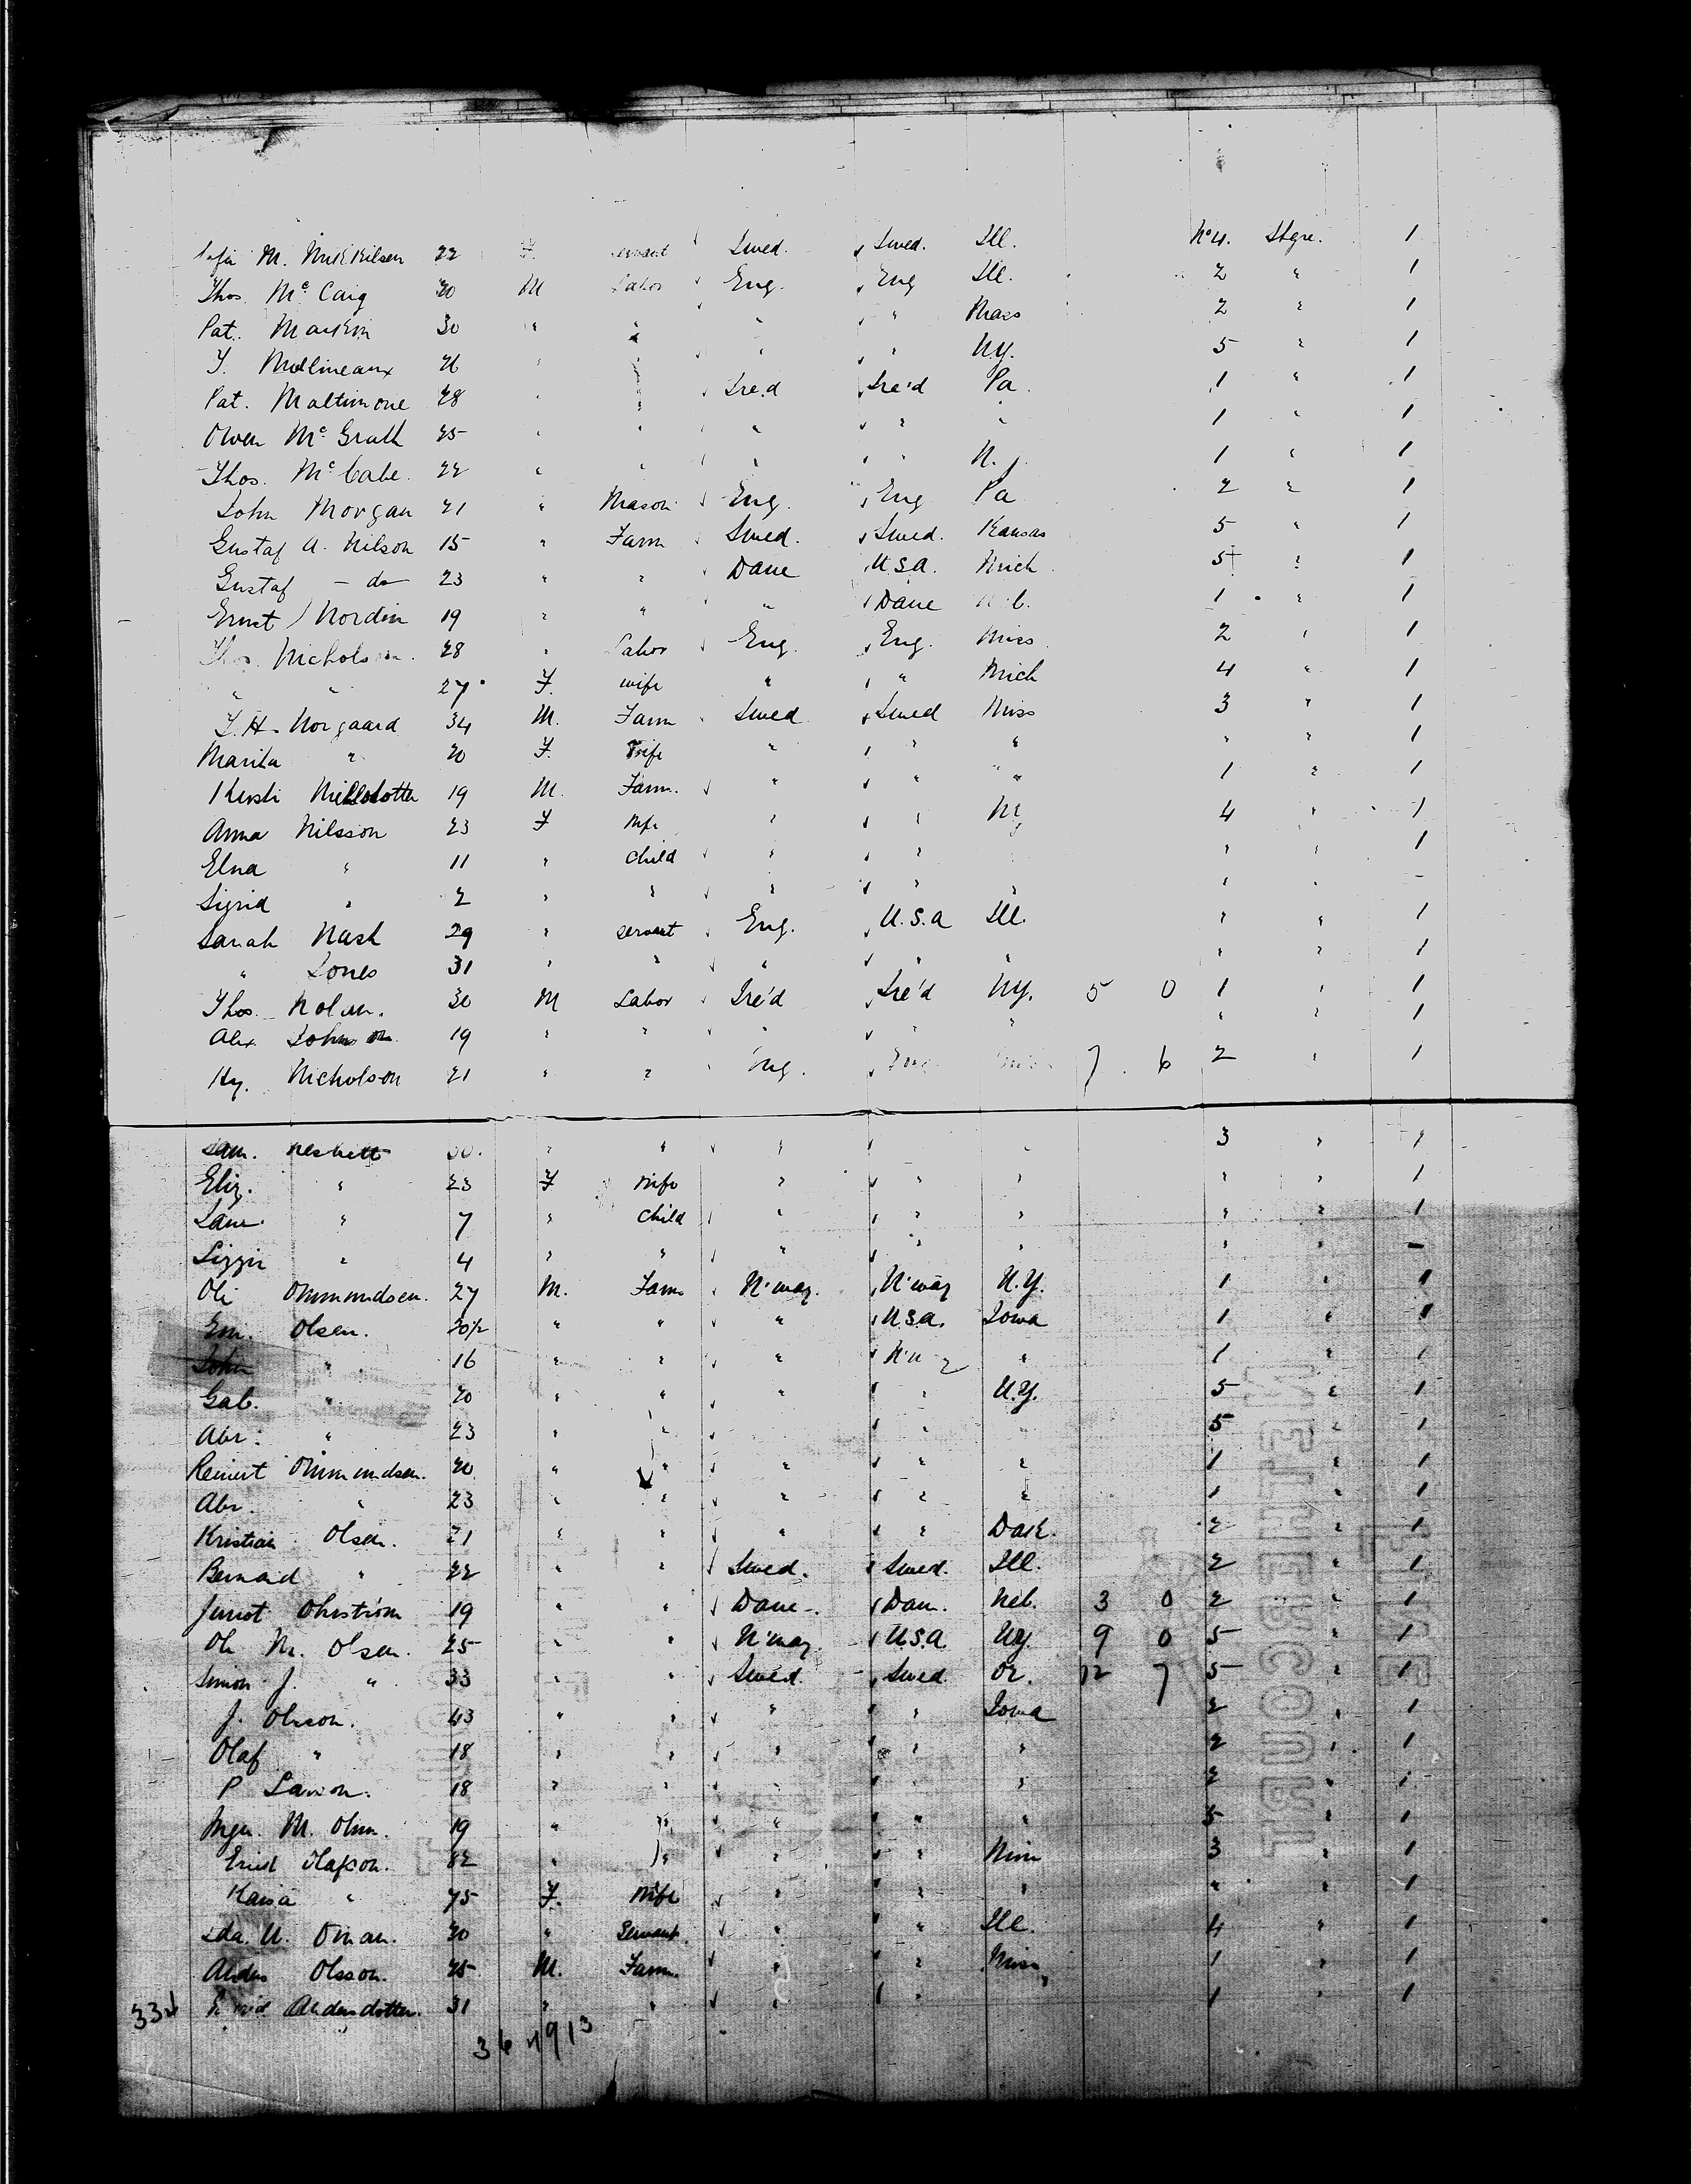 M. Mikkilsen 22 F. servant Swed. Swed. Ill. No 4. Stgre. 1
Thos. Mc Caig 30 M Labor Eng. Eng Ill. 2 " 1
Pat. 30 " " " " Mass 2 " 1
Mollineaux 26 " " " " N.Y. 5 " 1
Pat. Maltimore 28 " " Ire.d Ire'd Pa. 1 " 1
Owen Mc Grath 25 " " " " " 1 " 1
Thos. Mc Cabe. 22 " " " " N.J. 1 " 1
John Morgan 21 " Mason Eng. Eng Pa 2 " 1
Gustaf A. Nilson 15 " Farm Swed. Swed. Kansas 5 " 1
Gustaf - do - 23 " " Dane U.S.A. Mich 5 " 1
Ernst Nordin 19 " " " Dane Neb. 1 " 1
Thos. Nicholson. 28 " Labor Eng. Eng. Miss 2 " 1
" " 27 F. wife " " Mich 4 " 1
Norgaard 34 M. Farm Swed Swed Miss 3 " 1
Marita " 20 F. Wife " " " " " 1
Kersti 19 M. Farm. " " " 1 " 1
Anna Nilsson 23 F Wife " " NY 4 " 1
Elna " 11 " child " " " " 1
Sigrid " 2 " " " " " " " -
Sarah Nash 29 " servant Eng. U.S.A Ill. " " 1
" Jones 31 " " " " " " " 1
Thos. Nolan. 30 M Labor Ire'd Ire'd NY. 5 0 1 " 1
Alex Johnson 19 " " " " " " " 1
Hy. Nicholson 21 " " Eng. Eng 7 6 2 " 1
Sam. Nesbitt 30. " " " " 3 " 1
Eliz. " 23 F Wife " " " " " 1
Jane " 7 " Child " " " " " 1
Lizzie " 4 " " " " " " " -
Ole Ommundsen. 27 M. Farm N'way. N'way N.Y. 1 " 1
Em. Olsen. 30½ " " " U.S.a. Iowa 1 " 1
John " 16 " " " " 1 " 1
Gab. " 20 " " " " N.Y. 5 " 1
Abr. " 23 " " " 5 " 1
Reinert Ommundsen. 20 " " " " " 1 " 1
Abr. " 23 " " " " " 1 " 1
Kristian Olsen. 21 " " " " Dak. 2 " 1
Bernard " 22 " " Swed. Swed. Ill. 2 " 1
Ohrström 19 " " Dane. Dan. Neb. 3 0 2 " 1
Ole M. Olsen. 25 " " N'way. U.S.A. NY 9 0 5 " 1
Simon J. " 33 " " Swed. Swed. Or. 12 7 5 " 1
J. Olsson. 43 " " " " Iowa 2 " 1
Olaf " 18 " " " " " 2 " 1
P Larson. 18 " " " " 2 " 1
M. 19 " " " " " 5 " 1
Olafson. 82 " " " " Minn 3 " 1
Kaisa " 75 F. Wife " " " " " 1
Ida. U. Oman. 30 " Servant. " " Ill. 4 " 1
Andes Olsson. 25 M. Farm. " " 1 " 1
33 Andersdotter. 31 " " " " 1 " 1